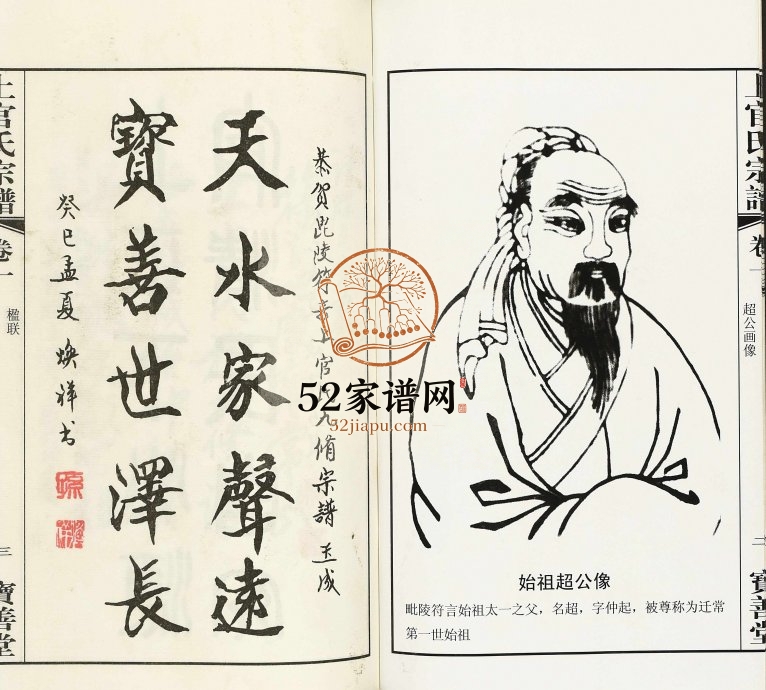 上官氏宗譜
卷一
超公画像
二
寶善堂
始祖超公像
毗陵符言始祖太一之父，名超，字仲起，被尊称为迁常
第一世始祖
恭贺毘陵符言上官氏九脩宗譜 玉成
天水家聲遠
寶善世澤長
癸巳孟夏 焕祥书
上官氏宗譜
卷一
楹联
三
寶善堂
52家谱网
52jiapu.com